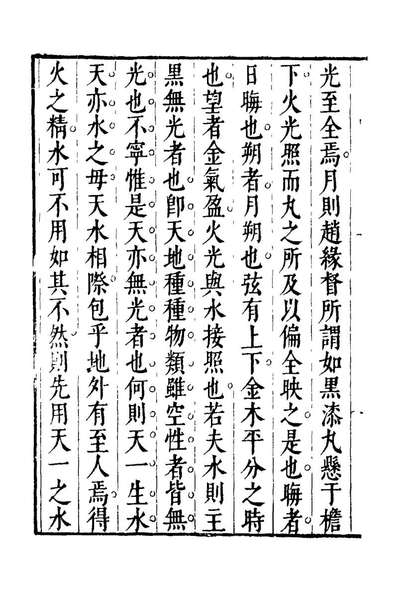 光至全焉月則趙緣督所謂如黑漆丸懸于檐
下火光照而丸之所及以偏全映之是也晦者
日晦也朔者月朔也弦有上下金木平分之時
也望者金氣盈火光與水接照也若夫水則主
黑無光者也卽天地種種物類雖空性者皆無
光也不寧惟是天亦無光者也何則天一生水
天亦水之母天水相際包乎地外有至人焉得
火之精水可不用如其不然則先用天一之水